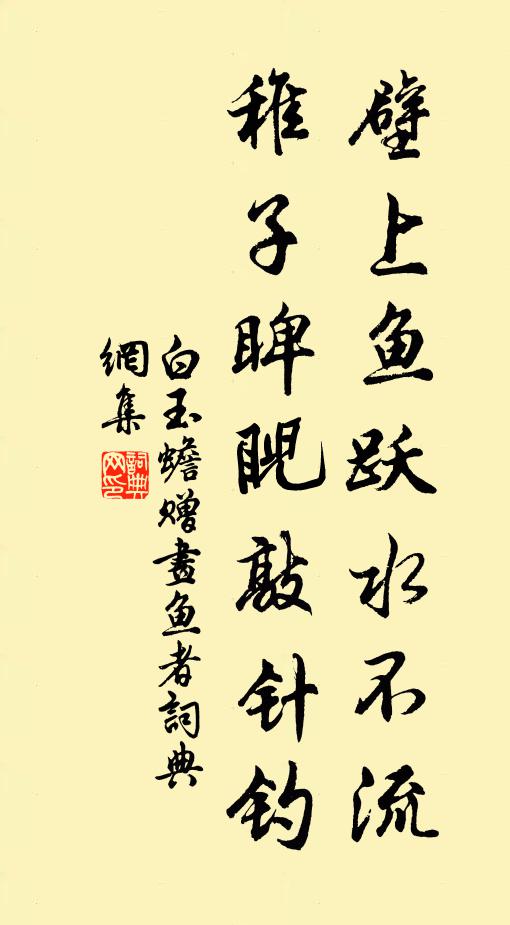 壁上鱼跃水不流
稚子睥睨敲针钓
白玉蟾赠畫鱼者詞典
網集
詞典网印